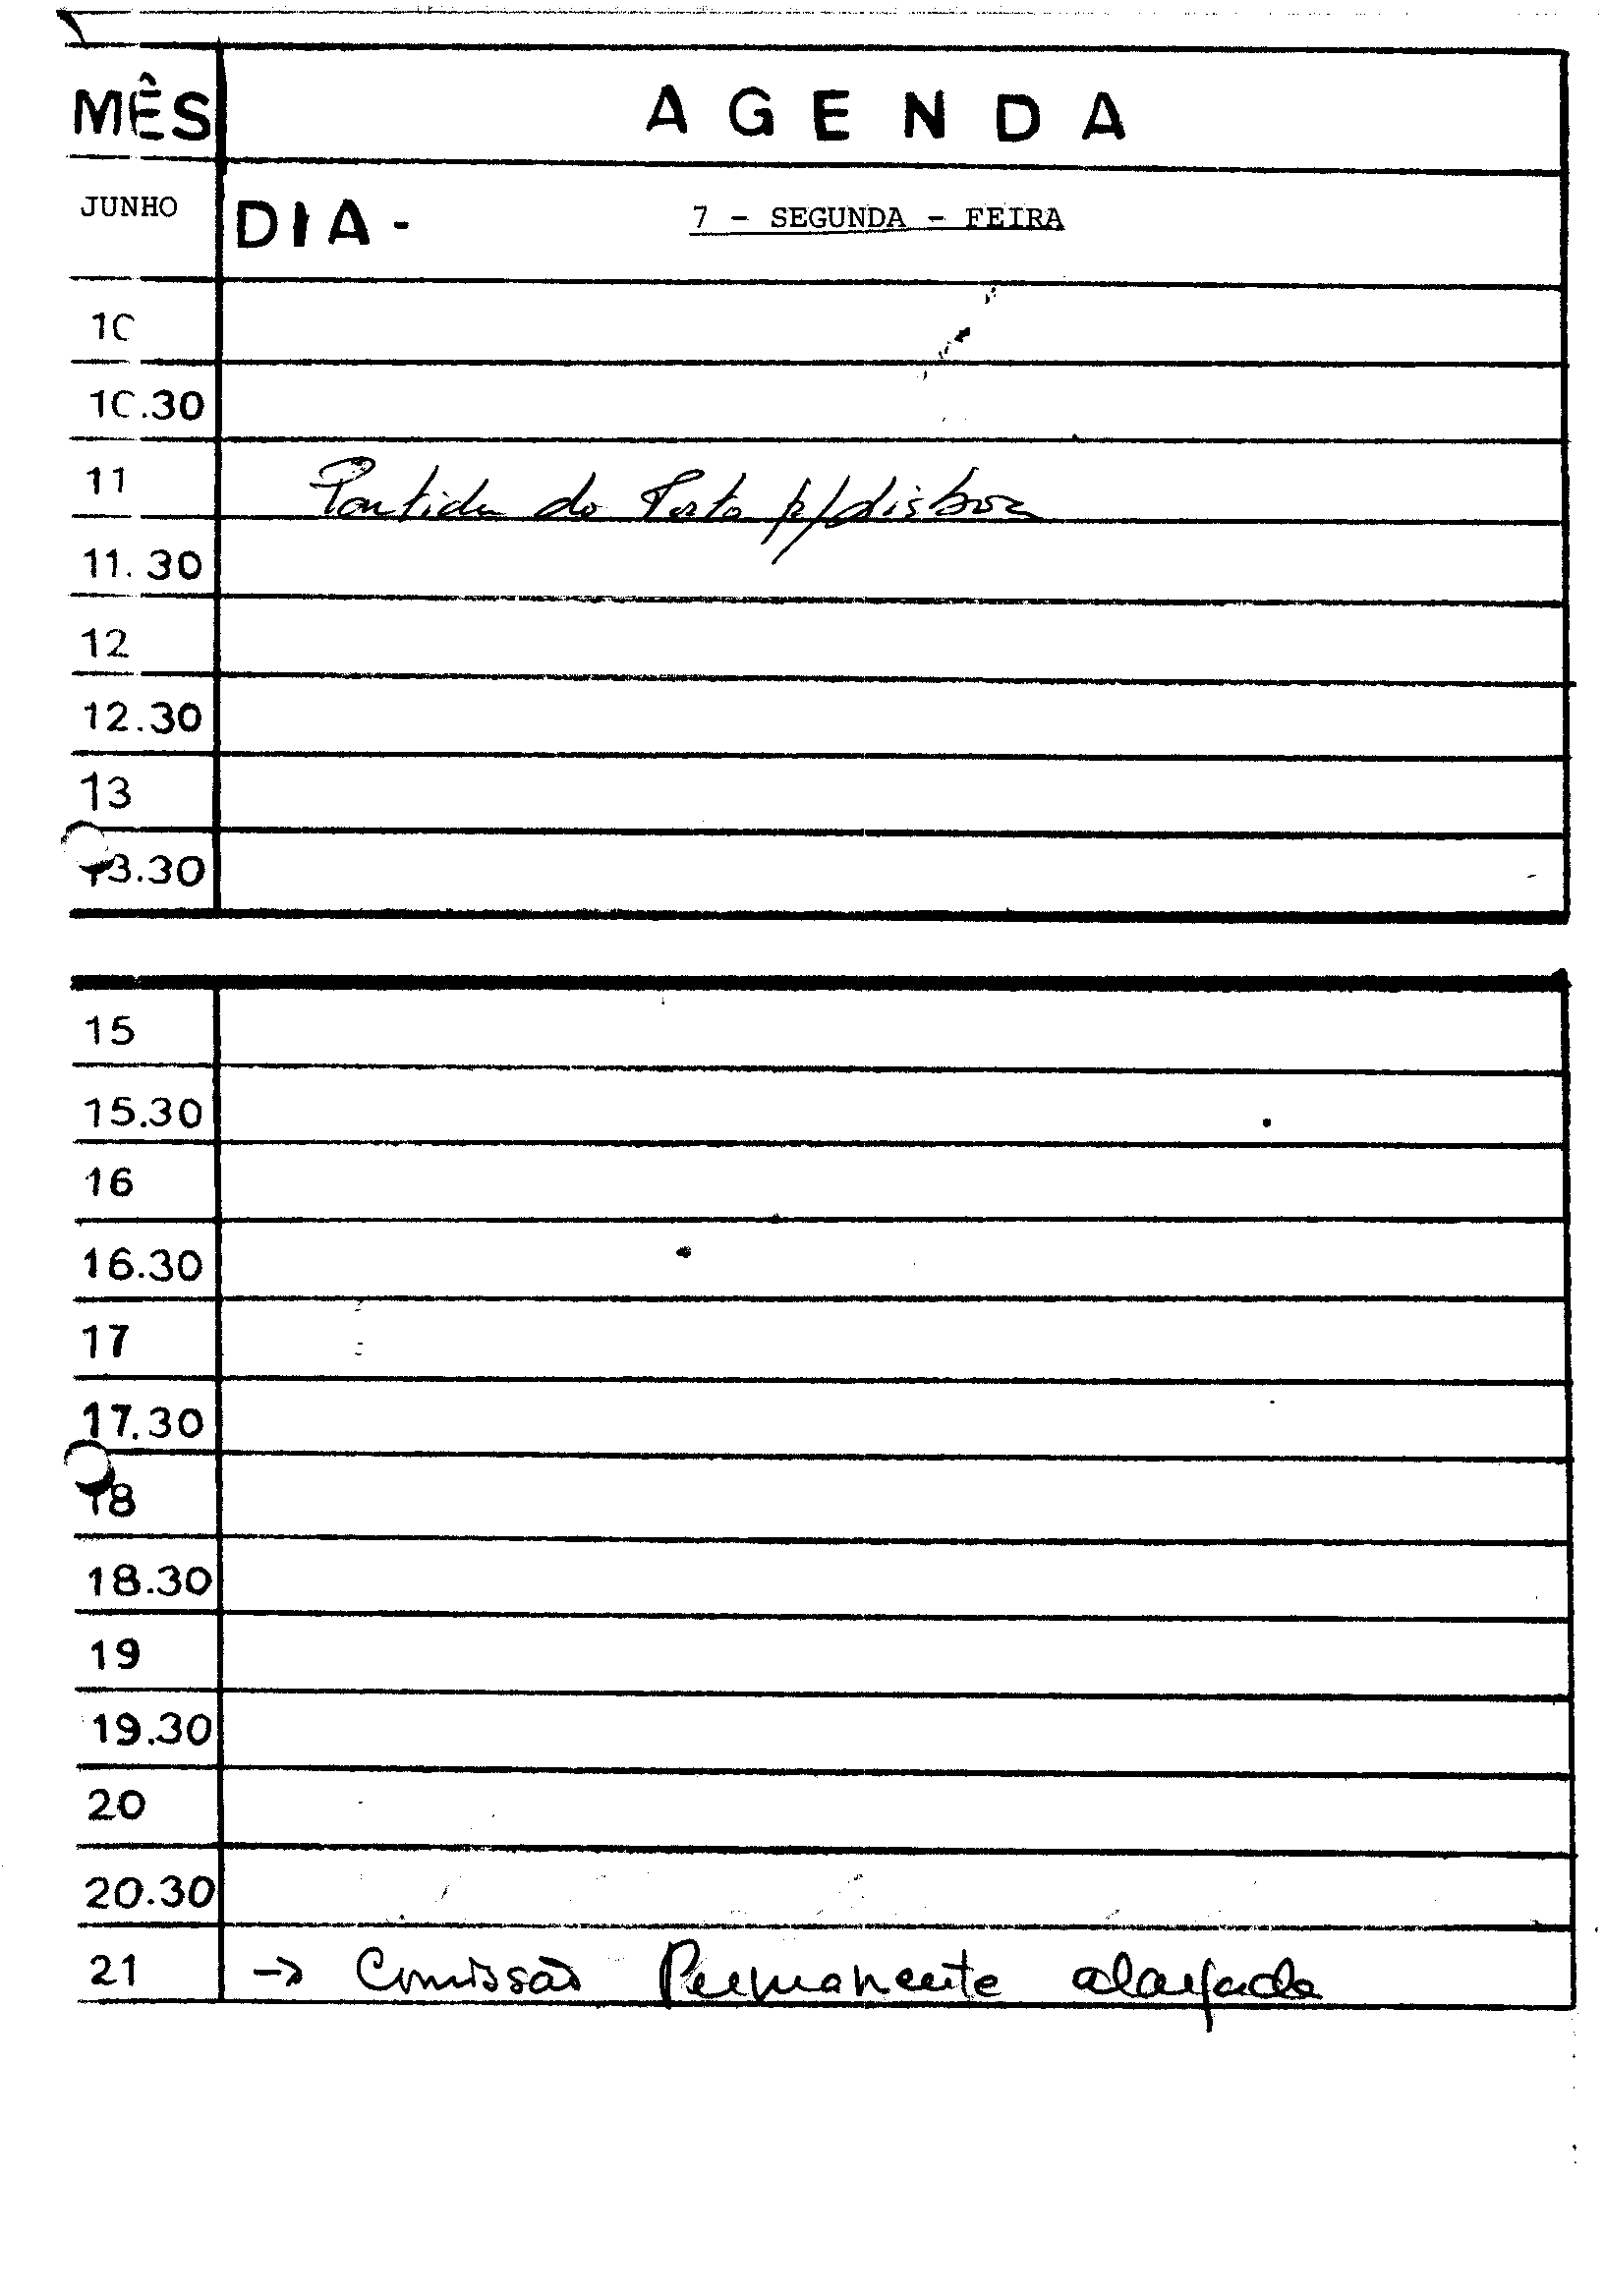 MÊS AGENDA
JUNHO DIA - 7 - SEGUNDA - FEIRA
10
10.30
11 Partida do Porto p/Lisboa
11.30
12
12.30
13
13.30
15
15.30
16
16.30
17
17.30
18
18.30
19
19.30
20
20.30
21 → Comissão Permanente alargada